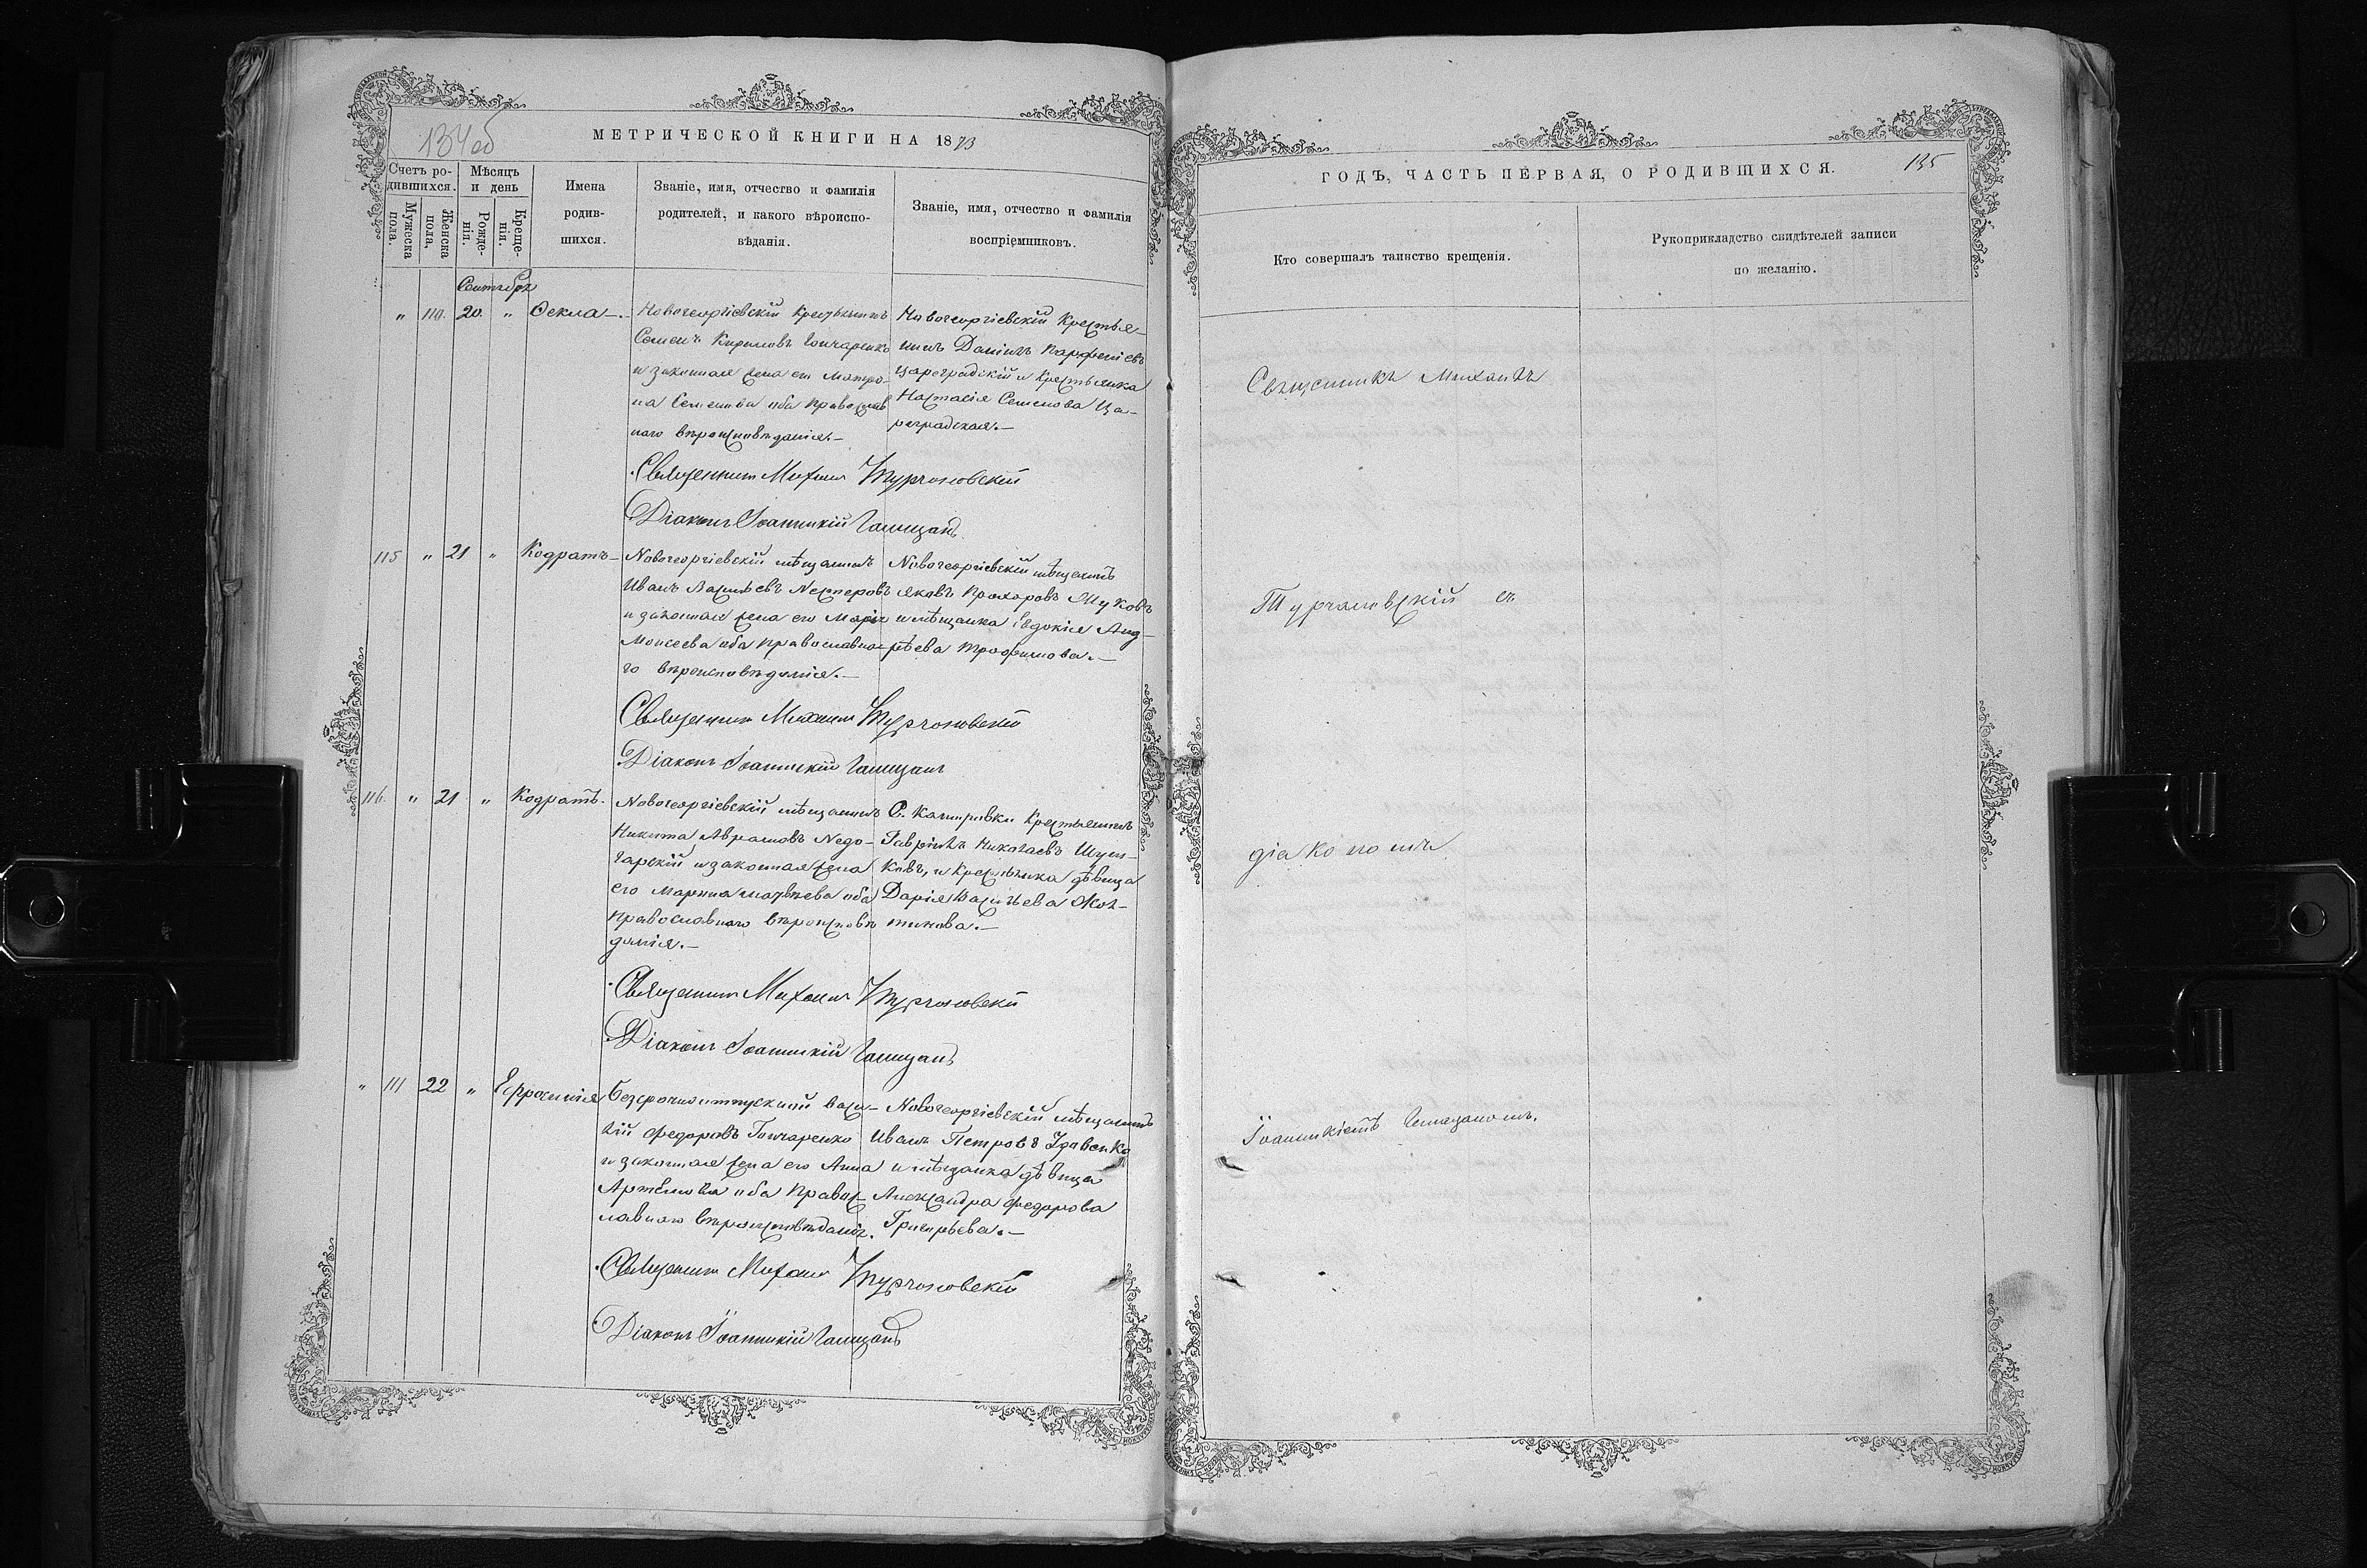 134 об
МЕТРИЧЕСКОЙ КНИГИ НА 1873
Счетъ ро-
дившихся.
Мужеска пола.
Женска пола.
Мѣсяцъ
и день
Рожде-
нія.
Креще-
нія.
Имена
родив-
шихся.
Званіе, имя, отчество и фамилія
родителей, и какого вѣроиспо-
вѣданія.
Званіе, имя, отчество и фамилія
воспріемниковъ.
Сентябрь
" 110. 20. " Ѳекла.-
Новогеоргіевскій Крестьянинъ
Семенъ Кириловъ Гончаренко
и законная жена его Матро-
на Семенова оба Православ
наго вѣроисповѣданія.-
Новогеоргіевскій Крестья-
нинъ Даніилъ Парфеніевъ
Цареградскій и Крестьянка
Настасія Семенова Ца-
реградская.-
Священникъ Михаилъ Турчановскій
Діаконъ Іоанникій
115 " 21 " Кодратъ-
Новогеоргіевскій мѣщанинъ
Иванъ Васильевъ Нестеровъ
и законная жена его Марія
Моисеева оба Православна-
го вѣроисповѣданія.-
Новогеоргіевскій мѣщанинъ
Яковъ Прохоровъ Жуковъ
и мѣщанка Евдокія Анд-
рѣева Трофимова.-
Священникъ Михаилъ Турчановскій
Діаконъ Іоанникій
116. " 21 " Кодратъ.
Новогеоргіевскій мѣщанинъ
Никита Аврамовъ Недо-
гарскій и законная жена
его Марина Матвѣева оба
Православнаго вѣроисповѣ
данія.-
С. Крестьянинъ
Гавріилъ Николаевъ
и Крестьянка дѣвица
Дарія Васильева
Священникъ Михаилъ Турчановскій
Діаконъ Іоанникій
" 111 22 " Ефросинія
Безсрочноотпускной Васи-
лій Федоровъ Гончаренко
и законная жена его Анна
Артемова оба Правос-
лавнаго вѣроисповѣданія.
Новогеоргіевскій мѣщанинъ
Иванъ Петровъ Удавенко
и мѣщанка дѣвица
Александра Федорова
Григорьева.-
Священникъ Михаилъ Турчановскій
Діаконъ Іоанникій
ГОДЪ, ЧАСТЬ ПЕРВАЯ, О РОДИВШИХСЯ.
135
Кто совершалъ таинство крещенія.
Рукоприкладство свидѣтелей записи
по желанію.
Священникъ Михаилъ
Турчановскій съ
діакономъ
Іоанникіемъ